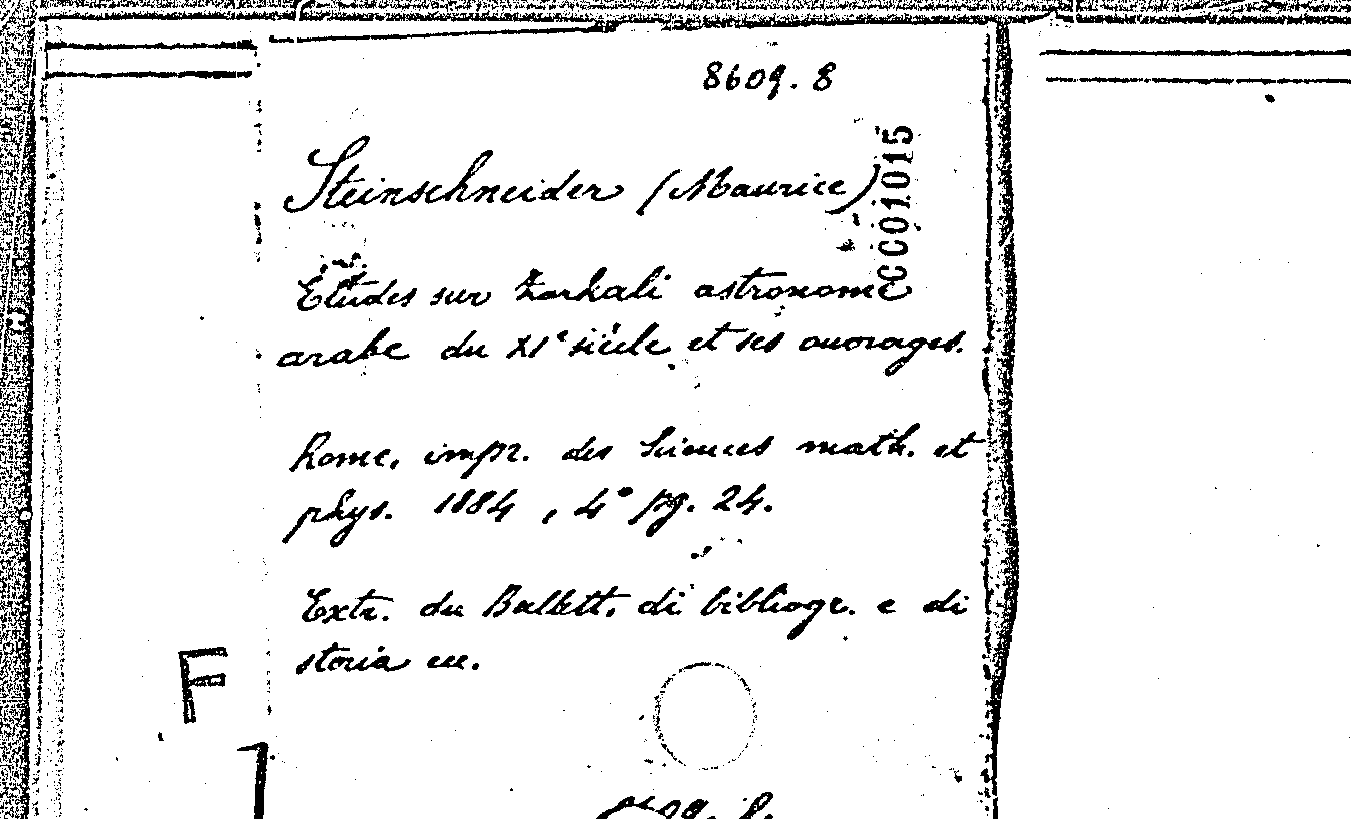 8609.8
Steinschneider (Maurice)
CC01015
Etudes sur Zarkali astronome
arabe du XIe siècle et ses ouvrages.
Rome, impr. des Sciences math. et
phys. 1884, 4° pg. 24.
Extr. du Bullett. di bibliogr. e di
storia ecc.
F